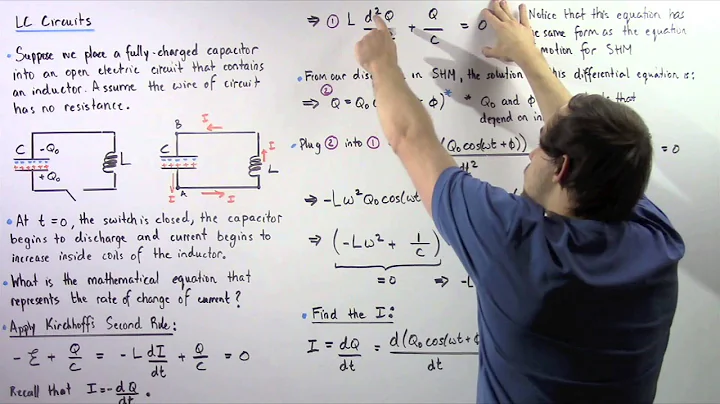 LC Circuits
• Suppose we place a fully-charged capacitor
into an open electric circuit that contains
an inductor. Assume the wire of circuit
has no resistance.
C -Q₀ L
+Q₀
B I
C I L
I A I
• At t=0, the switch is closed, the capacitor
begins to discharge and current begins to
increase inside coils of the inductor.
• What is the mathematical equation that
represents the rate of change of current?
• Apply Kirchhoff's Second Rule:
- ℰ + Q/C = -L dI/dt + Q/C = 0
Recall that I = -dQ/dt.
⇒ ① L d²Q + Q/C = 0
Notice that this equation has
same form as the equation
motion for SHM
• From our in SHM, the solution this differential equation is:
②
⇒ Q = Q₀ φ)* * Q₀ and φ that
depend on
• Plug ② into ① (Q₀cos(ωt+φ)) = 0
dt²
⇒ -Lω²Q₀cos(ωt
⇒ (-Lω² + 1/C)
= 0 ⇒ -L
• Find the I:
I = dQ/dt = d(Q₀cos(ωt+φ)/dt